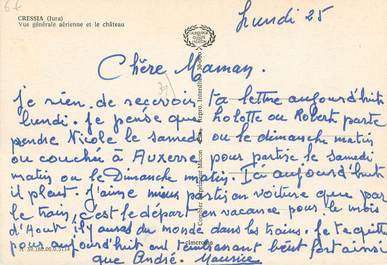 CRESSIA (Jura)
Vue générale aérienne et le château
Lundi 25
Chère Maman.
je vien de recevoir ta lettre aujourd'huit
lundi. je pense que ou Robert parte
pendre Nicole le samedi ou le dimanche matin
ou couchée à Auxerre pour partire le samedi
matin ou le Dimanche matin. Ici aujourd'huit
il pleut. j'aime mieux partir en voiture que par
le train, c'est le départ en vacance pour le mois
d'Aout il y auras du monde dans les trains. je te quitte
pour aujourd'huit en t'embrassant bient fort ainsi
que André. Maurice